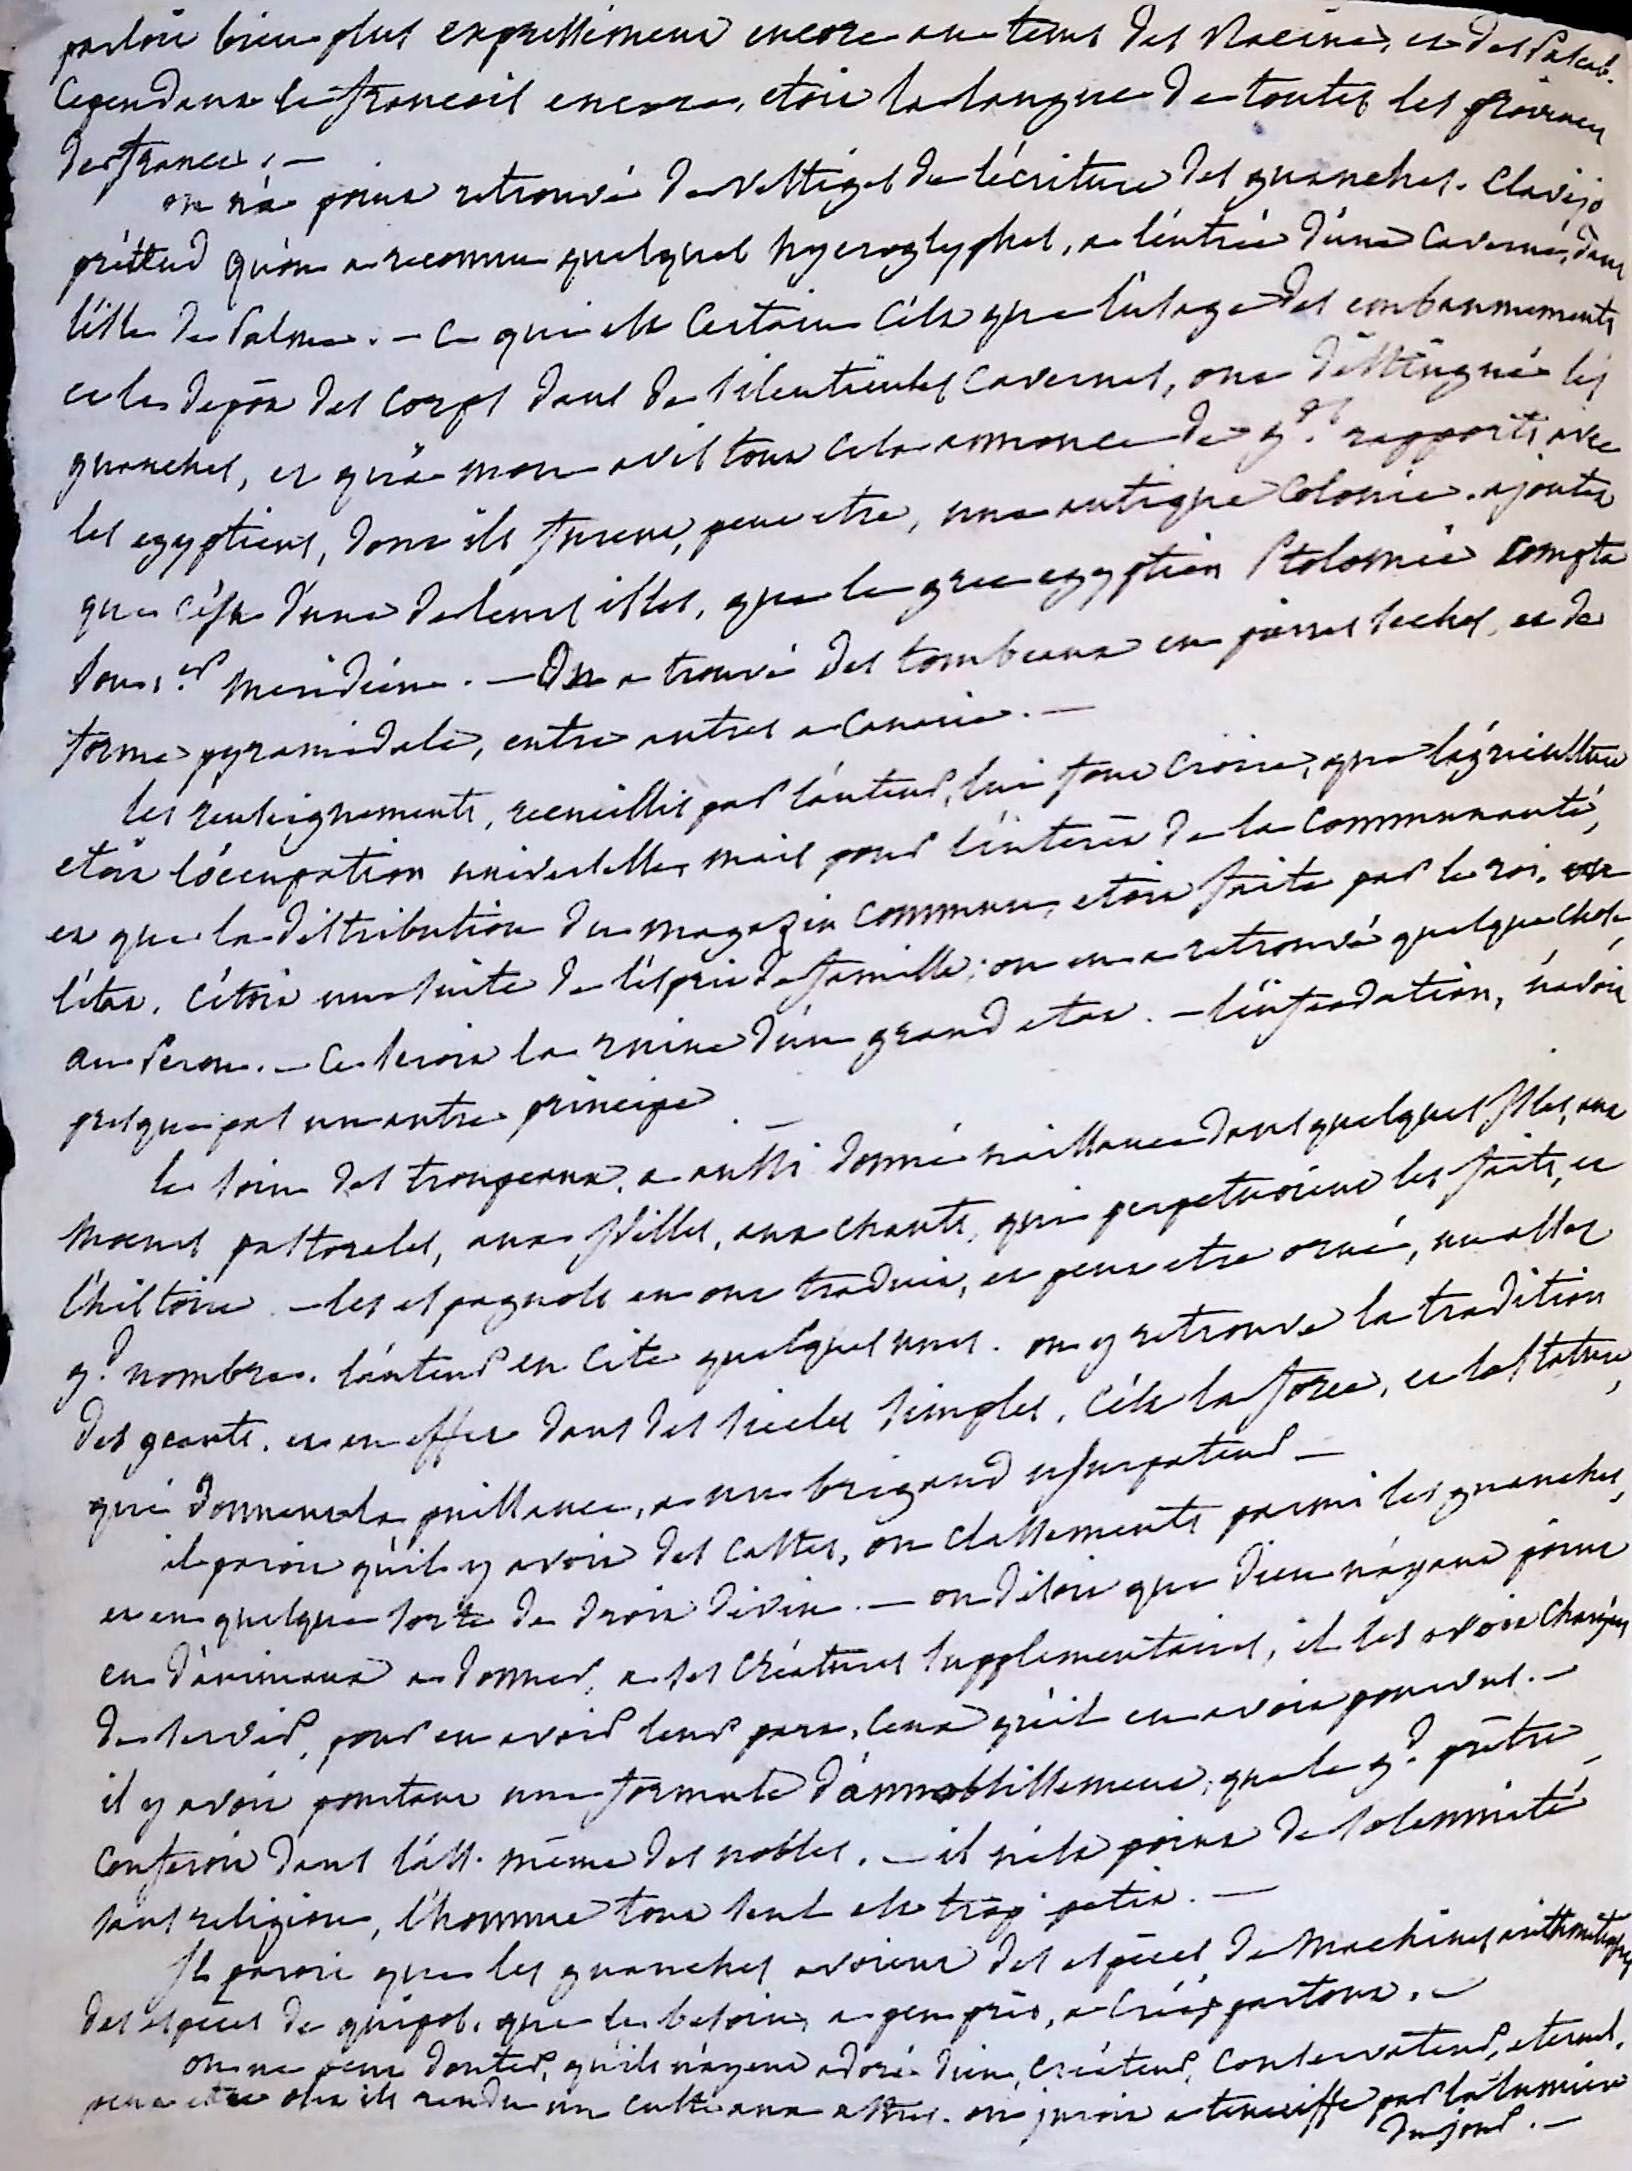 parloit bien plus expressément encore au tems des Racine, et des Pascal.
Cependant le françois encore, etoit la langue de toutes les provinces
de france. —
on n'a point retrouvé de vestiges de l'écriture des guanches. Clavijo
prétend qu'on a reconnu quelques hyeroglyphes, a l'entrée d'une caverne, dans
l'isle de Palma. — ce qui est certain c'est que l'usage des embaumements
et le depôt des corps dans de silentieuses cavernes, ont distingué les
guanches, et qu'à mon avis tout cela annonce de gds. rapports avec
les egyptiens, dont ils furent, peut etre, une antique colonie. ajoutez
que c'est d'une de leurs isles, que le grec egyptien Ptolomée compta
son 1er. meridien. — On a trouvé des tombeaux en pierres seches, et de
forme pyramidale, entre autres a Canarie. —
les renseignements, recueillis par l'auteur, lui font croire, que l'agriculture
etoit l'occupation universelle, mais pour l'interêt de la communauté,
et que la distribution du magazin commun, etoit faite par le roi, ou
l'état. c'étoit une suite de l'esprit de famille; on en a retrouvé quelque chose
au Perou. — ce seroit la ruine d'un grand etat. — l'inféodation, n'avoit
presque pas un autre principe —
le soin des troupeaux, a aussi donné naissance dans quelques Isles, aux
moeurs pastorales, aux Idilles, aux chants, qui perpetuoient les faits, et
l'histoire. — les espagnols en ont traduit, et peut etre orné, un assez
gd. nombre. l'auteur en cite quelques unes. on y retrouve la tradition
des geants. et en effet dans des siecles simples, c'est la force, et la stature,
qui donnent la puissance, a un brigand usurpateur —
il paroit qu'il y avoit des castes, ou classements parmi les guanches,
et en quelque sorte de droit divin. — on disoit que dieu n'ayant point
eu d'animaux a donner, a ses créatures supplementaires, il les avoit chargées
de servir, pour en avoir leur part, ceux qu'il en avoit pourvus. —
il y avoit pourtant une formule d'annoblissement, que le gd. prêtre
conferoit dans l'ass. même des nobles. — il n'est point de solemnité
sans religion, l'homme tout seul est trop petit. —
Il paroit que les guanches avoient des espèces de machines arithmétiques
des espèces de quipos. que le besoin, a peu près, a créés partout. —
on ne peut douter, qu'ils n'ayent adoré dieu, créateur, conservateur, eternel.
peut etre ont ils rendu un culte aux astres. on juroit a teneriffe par la lumière
du jour. —